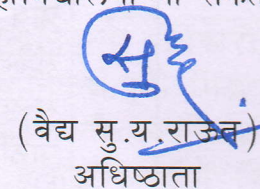 सु
( वैद्य सु.य.राऊत )
अधिष्ठाता